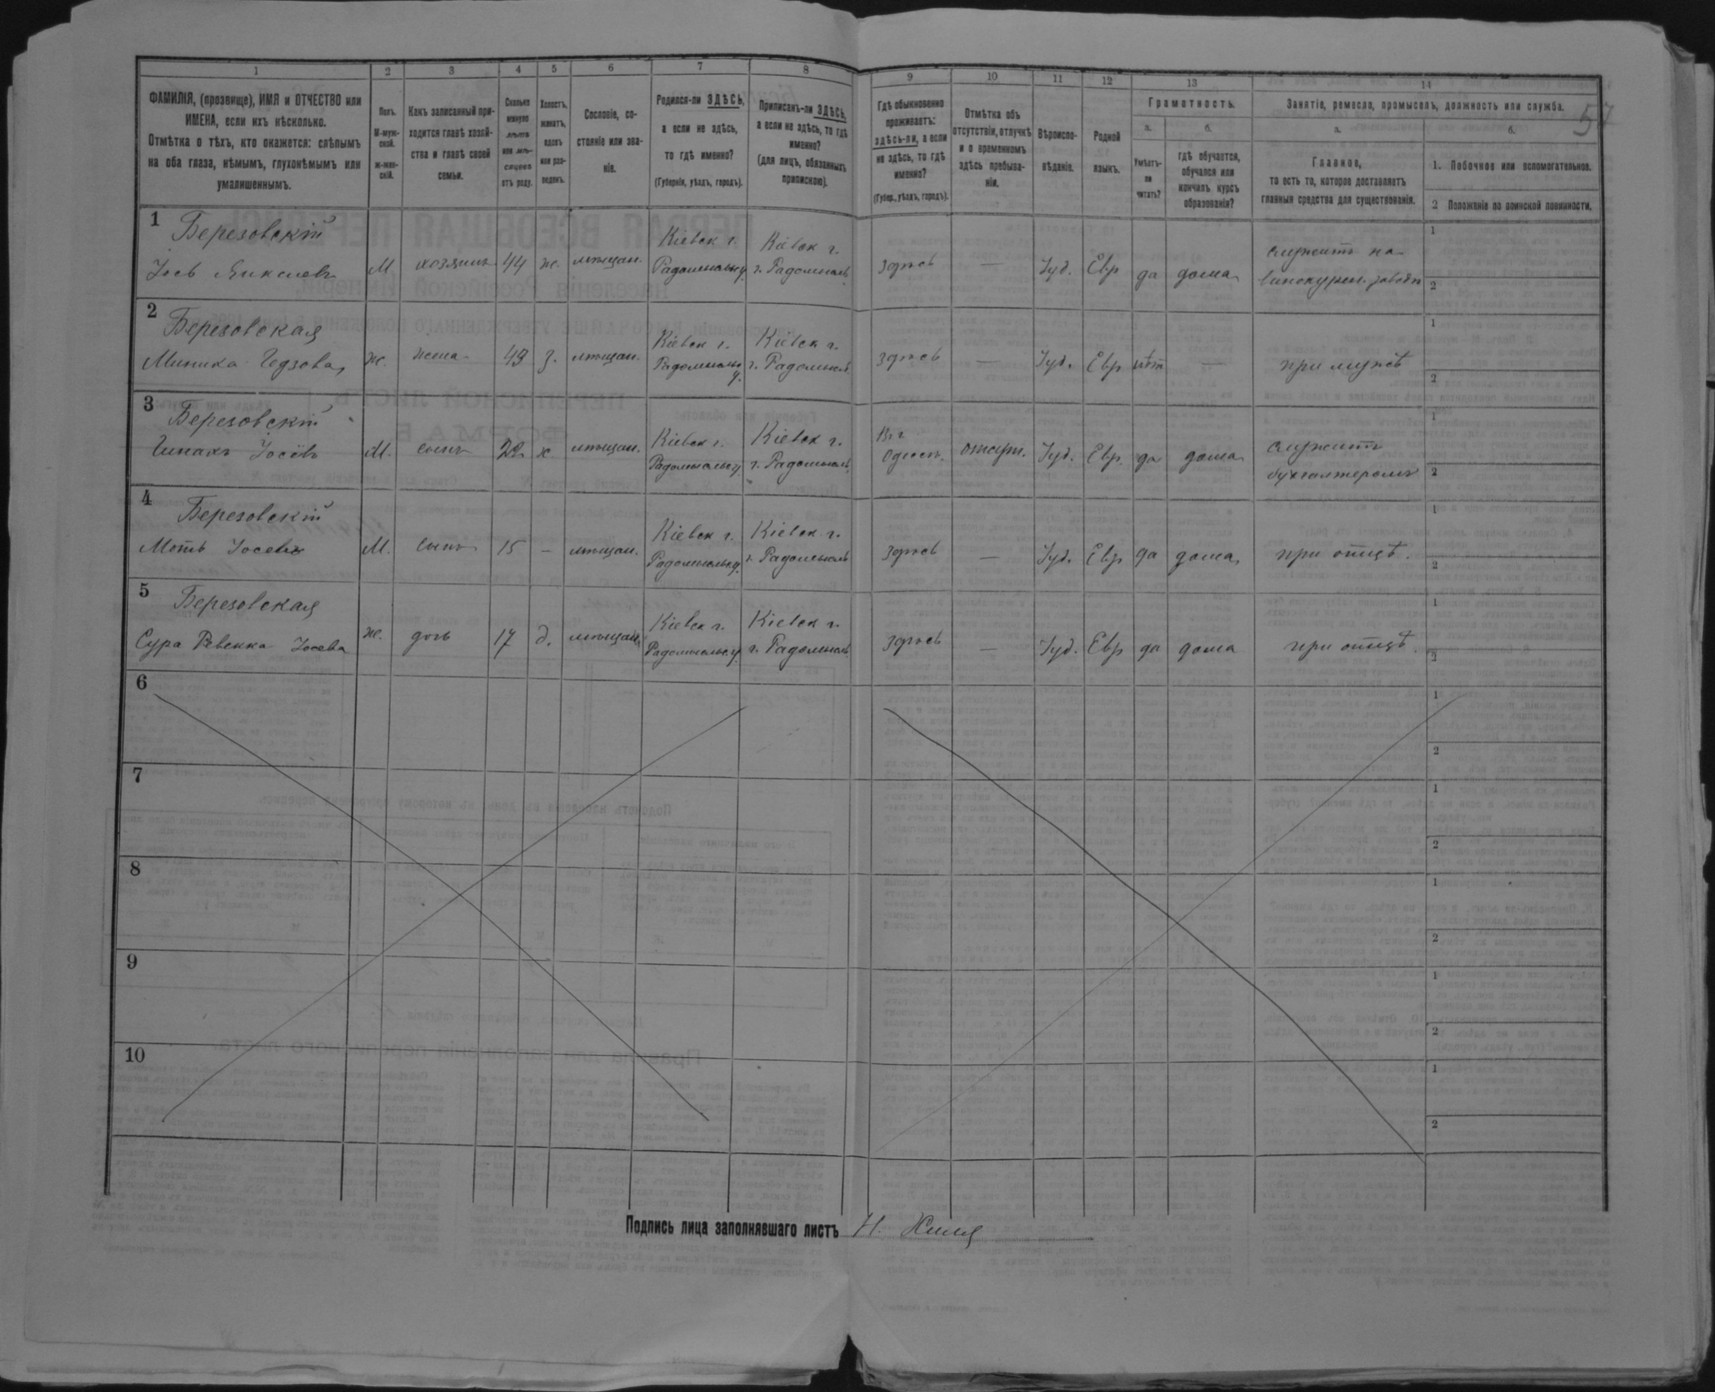 1 2 3 4 5 6 7 8 9 10 11 12 13 14
ФАМИЛІЯ, (прозвище), ИМЯ и ОТЧЕСТВО или
ИМЕНА, если ихъ нѣсколько.
Отмѣтка о тѣхъ, кто окажется: слѣпымъ
на оба глаза, нѣмымъ, глухонѣмымъ или
умалишеннымъ.
Полъ.
М-муж-
ской.
ж-жен-
скій.
Какъ записанный при-
ходится главѣ хозяй-
ства и главѣ своей
семьи.
Сколько
минуло
лѣтъ
или мѣ-
сяцевъ
отъ роду.
Холостъ,
женатъ,
вдовъ
или раз-
веденъ.
Сословіе, со-
стояніе или зва-
ніе.
Родился-ли ЗДѢСЬ,
а если не здѣсь,
то гдѣ именно?
(Губернія, уѣздъ, городъ).
Приписанъ-ли ЗДѢСЬ,
а если не здѣсь, то гдѣ
именно?
(для лицъ, обязанныхъ
припискою).
Гдѣ обыкновенно
проживаетъ:
здѣсь-ли, а если
не здѣсь, то гдѣ
именно?
(Губер., уѣздъ, городъ).
Отмѣтка объ
отсутствіи, отлучкѣ
и о временномъ
здѣсь пребыва-
ніи.
Вѣроиспо-
вѣданіе.
Родной
языкъ.
Грамотность.
а.
Умѣетъ-
ли
читать?
б.
гдѣ обучается,
обучался или
кончилъ курсъ
образованія?
Занятіе, ремесло, промыселъ, должность или служба.
57
а.
Главное,
то есть то, которое доставляетъ
главныя средства для существованія.
б.
1. Побочное или вспомогательное.
2 Положеніе по воинской повинности.
1 Березовскій
Іось М. хозяинъ 44 ж. мѣщан. Кіевск г. Радомысльск у. Кіевск г. г. Радомысль здѣсь — Іуд. Евр да дома служитъ на винокурен. заводѣ 1 2
2 Березовская
Ж. жена 43 з. мѣщан. Кіевск г. Радомысльск у. Кіевск г. г. Радомысль здѣсь — Іуд. Евр нѣт — при мужѣ 1 2
3 Березовскій
Іосевъ М. сынъ 22 х мѣщан. Кіевск г. Радомысльск у. Кіевск г. г. Радомысль Въ г Одессѣ отсут. Іуд. Евр. да дома служитъ бухгалтеромъ 1 2
4 Березовскій
Мотъ Іосевъ М. сынъ 15 — мѣщан. Кіевск г. Радомысльск у. Кіевск г. г. Радомысль здѣсь — Іуд. Евр да дома при отцѣ. 1 2
5 Березовская
Сура Ревекка Іосева ж. дочь 17 д. мѣщан. Кіевск г. Радомысльск у. Кіевск г. г. Радомысль здѣсь — Іуд. Евр да дома при отцѣ. 1 2
6 1 2
7 1 2
8 1 2
9 1 2
10 1 2
Подпись лица заполнявшаго листъ